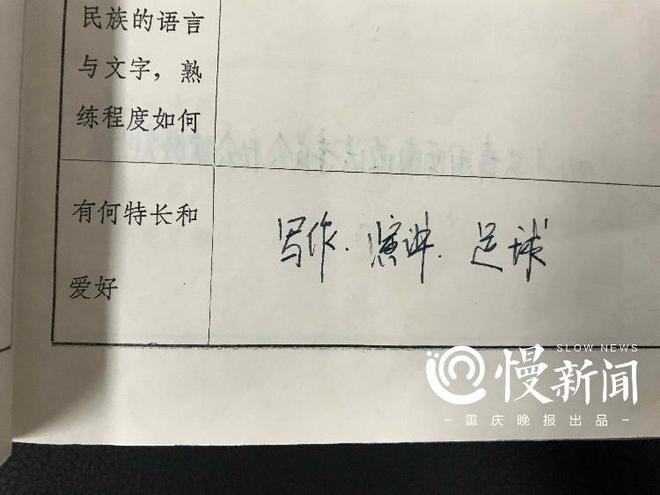 民族的语言
与文字，熟
练程度如何
有何特长和
爱好
写作.演讲.足球
SLOW NEWS
慢新闻
-重庆晚报出品-